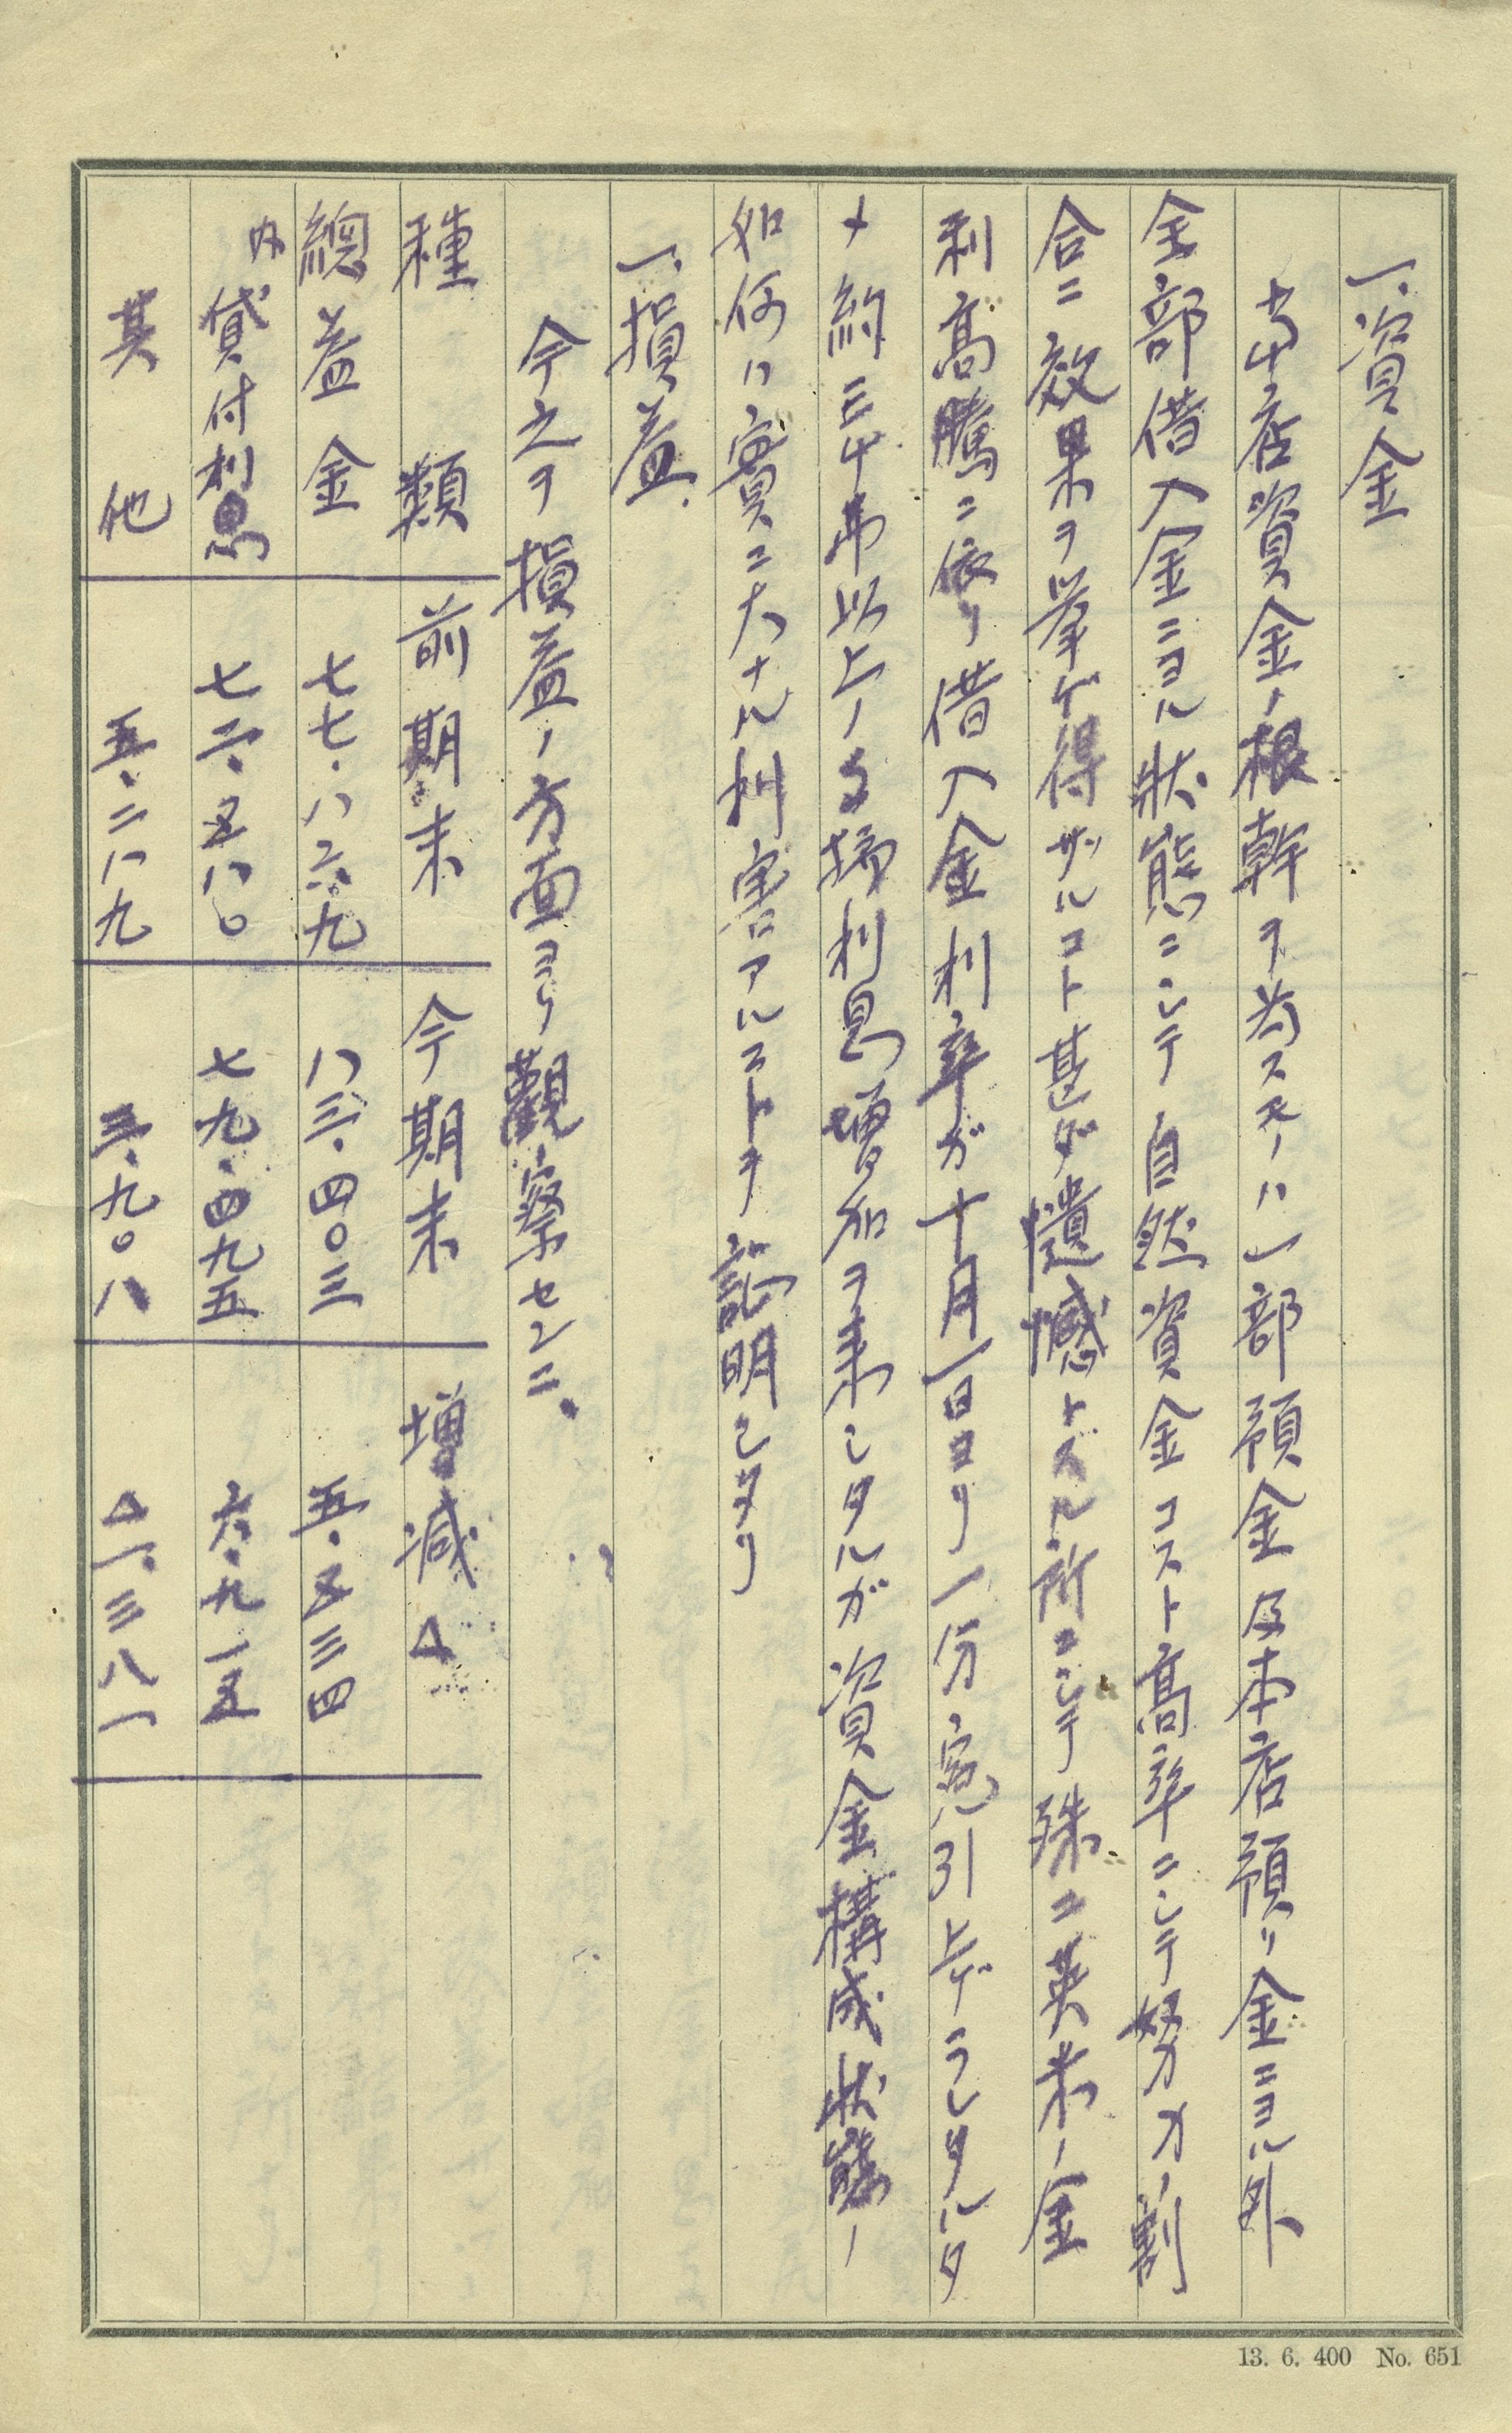 一、資金
当店資金ノ根幹ヲ為スモノハ一部預金及本店預リ金ニヨル外
全部借入金ニヨル状態ニシテ自然資金コスト高率ニシテ努力ノ割
合ニ效果ヲ挙ゲ得ザルコト甚ダ遺憾トスル所ニシテ殊ニ英米ノ金
利高騰ニ依リ借入金利率ガ十月一日ヨリ一分宛引上ゲラレタルタ
メ約三千弗以上ノ支拂利息増加ヲ来シタルガ資金構成状態ノ
如何ハ實ニ大ナル利害アルコトヲ証明シタリ
一、損益
今之ヲ損益ノ方面ヨリ觀察センニ、
種類 前期末 今期末 増減△
總益金 七七、八六九 八三、四〇三 五、五三四
内 貸付利息 七二、五八〇 七九、四九五 六、九一五
其他 五、二八九 三、九〇八 △一、三八一
13. 6. 400 No. 651